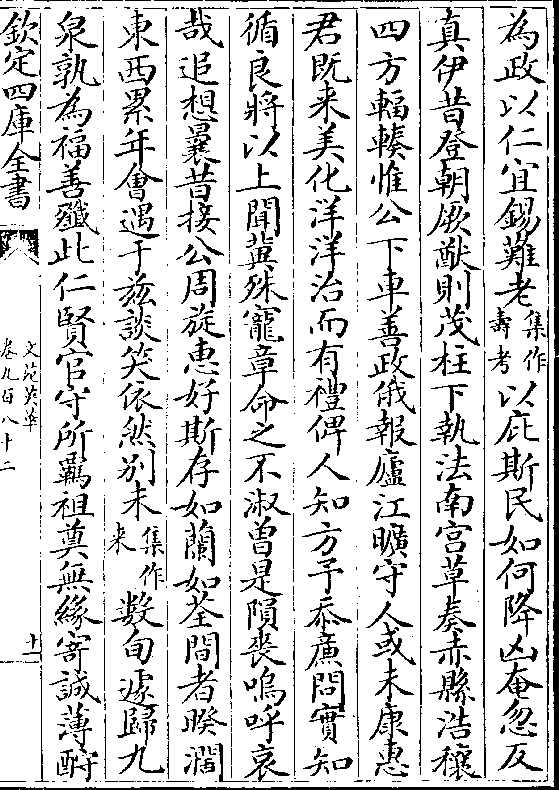 為政以仁宜錫難老集作壽考以庇斯民如何降凶奄忽反
真伊昔登朝厥猷則茂柱下執法南宫草奏赤縣浩穰
四方輻輳惟公下車善政俄報廬江曠守人或未康惠
君既来美化洋洋治而有禮俾人知方予忝亷問實知
循良將以上聞冀殊寵章命之不淑曽是隕喪嗚呼哀
哉追想曩昔接公周旋惠好斯存如蘭如荃間者暌濶
東西累年會遇于兹談笑依然别未集作来數旬遽歸九
泉孰為福善殱此仁賢官守所羈祖奠無緣寄誠薄酹
欽定四庫全書
文苑英華
卷九百八十二
十一